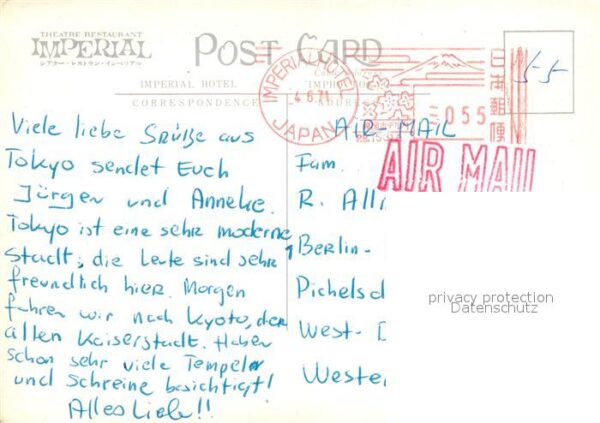 THEATRE RESTAURANT
IMPERIAL
シアター・レストラン・インペリアル
POST CARD
IMPERIAL HOTEL
CORRESPONDENCE
ADDRESS
IMPERIAL HOTEL
4.6.71
JAPAN
055
日本郵便
55
AIR-MAIL
AIR MAIL
Viele liebe Grüße aus
Tokyo sendet Euch
Jürgen und Anneke.
Tokyo ist eine sehr moderne
Stadt, die Leute sind sehr
freundlich hier. Morgen
fahren wir nach Kyoto, der
alten Kaiserstadt. Haben
schon sehr viele Tempel
und Schreine besichtigt!
Alles Liebe!!
Fam.
R. Alli
Berlin-
Pichelsd
West-
Weste
privacy protection
Datenschutz